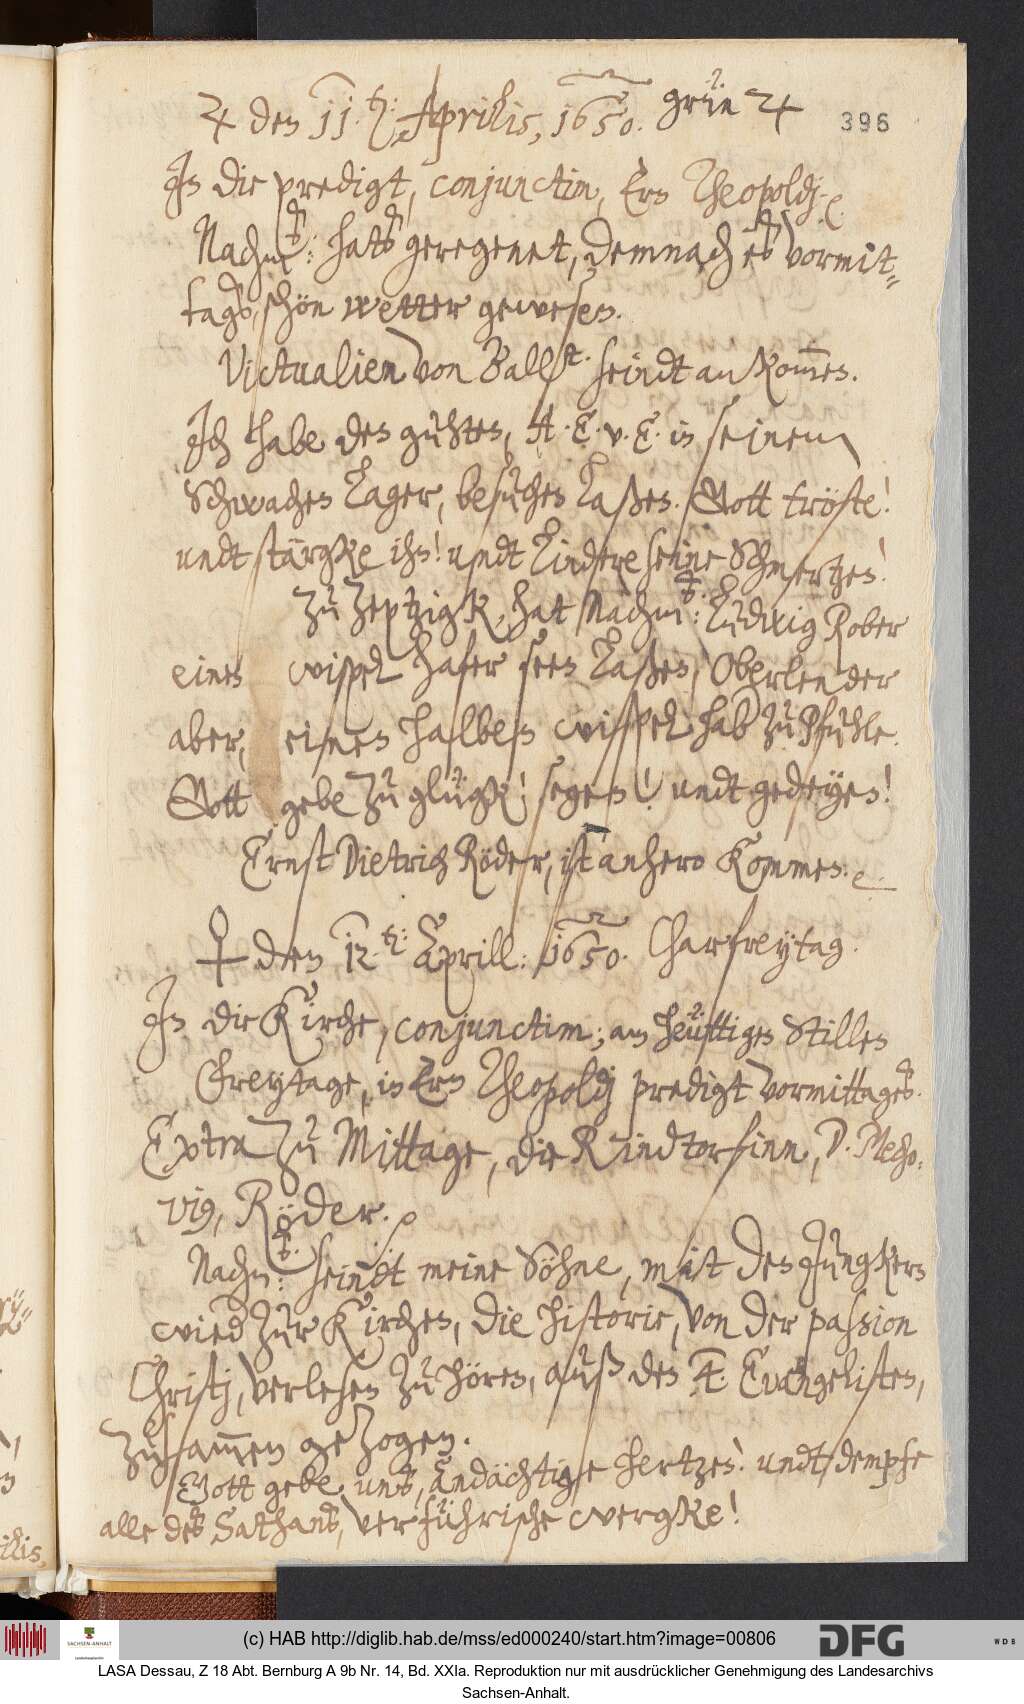 ♃ den 11. t: Aprilis, 1650. grün ♃
396
In die predigt, conjunctim, Ern Theopoldj.
Nachm: hats geregenet, demnach es vormit=
tags, schön wetter gewesen.
Victualien von Ball: seindt an kommen.
Ich habe den guhten, A. E. v. E. in seinem
Schwachen Lager, besuchen laßen. Gott tröste!
undt stärgke ihn! undt lindere seine Schmertzen!
Zu Zeptzigk, hat Nachm: Ludwig Rober
einen wispel hafer seen laßen, Oberlender
aber, einen halben wispel hab zu Pfuhle.
Gott gebe zu glügk! segen! undt gedeyen!
Ernst Dietrich Röder, ist anhero kommen.
♀ den 12. t: Aprill: 1650. Charfreytag.
In die Kirche, conjunctim; am heüttigen Stillen
Freytage, in Ern Theopoldj predigt vormittages.
Extra zu Mittage, die Rindtorfinn, D. Mecho:
vig, Röder.
Nachm: seindt meine Söhne, mitt den Jungkern
wied zur Kirchen, die historie, von der passion
Christj, verlesen zu hören, auß den 4. Evangelisten,
zusammen gezogen.
Gott gebe uns, andächtige hertzen! undt dempfe
alle des Sathans, verführische wergke!
ilis,
SACHSEN-ANHALT
(c) HAB http://diglib.hab.de/mss/ed000240/start.htm?image=00806
DFG
WDB
LASA Dessau, Z 18 Abt. Bernburg A 9b Nr. 14, Bd. XXIa. Reproduktion nur mit ausdrücklicher Genehmigung des Landesarchivs
Sachsen-Anhalt.